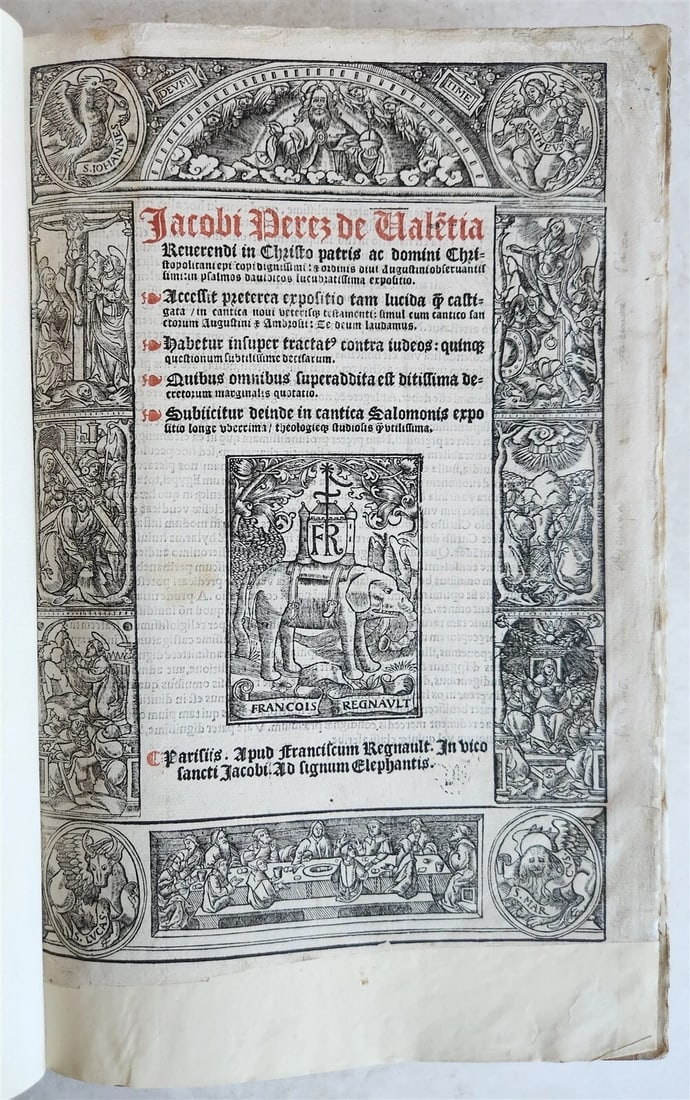 DEVM
TIME
S. IOHANNE
MATHEVS
Jacobi Perez de Ualẽtia
Reuerendi in Christo patris ac domini Chri-
stopolitani epi̅scopi dignissimi: ⁊ ordinis diui Augustini obseruantis
simi: in psalmos dauidicos lucubratissima expositio.
Accessit preterea expositio tam lucida ꝙ̃ casti-
gata / in cantica noui veterisqꝫ testamenti: simul cum cantico san
ctorum Augustini ⁊ Ambrosii: Te deum laudamus.
Habetur insuper tractatꝰ contra iudeos: quinqꝫ
questionum subtilissime decisarum.
Quibus omnibus superaddita est ditissima de-
cretorum marginalis quotatio.
Subiicitur deinde in cantica Salomonis expo
sitio longe vberrima / theologieqꝫ studiosis ꝙ̃ vtilissima.
FR
FRANCOIS REGNAULT
Parisiis. Apud Franciscum Regnault. In vico
sancti Jacobi. Ad signum Elephantis.
S. LVCAS
S. MAR
CVS